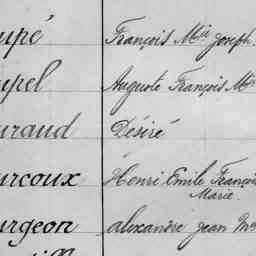 upé François Mie Joseph
upel Auguste François Mie
uraud Désiré
urcoux Henri Emile François
Marie.
urgeon alexandre jean